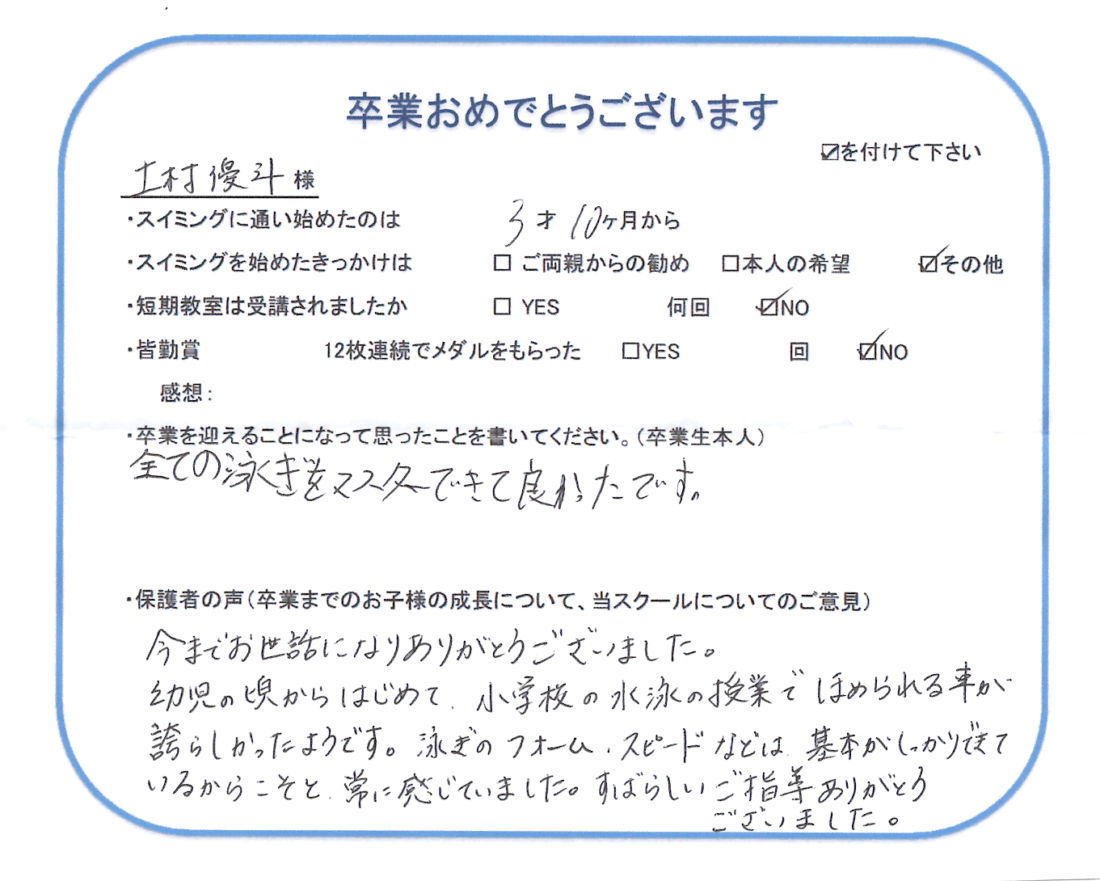 卒業おめでとうございます
☑を付けて下さい
村優斗 様
・スイミングに通い始めたのは 3才 10ヶ月から
・スイミングを始めたきっかけは □ ご両親からの勧め □本人の希望 ☑その他
・短期教室は受講されましたか □ YES 何回 ☑NO
・皆勤賞 12枚連続でメダルをもらった □YES 回 ☑NO
感想：
・卒業を迎えることになって思ったことを書いてください。（卒業生本人）
全ての泳ぎをマスターできて良かったです。
・保護者の声（卒業までのお子様の成長について、当スクールについてのご意見）
今までお世話になりありがとうございました。
幼児の頃からはじめて、小学校の水泳の授業でほめられる事が
誇らしかったようです。泳ぎのフォーム、スピードなどは、基本がしっかりできて
いるからこそと、常に感じていました。すばらしいご指導ありがとう
ございました。